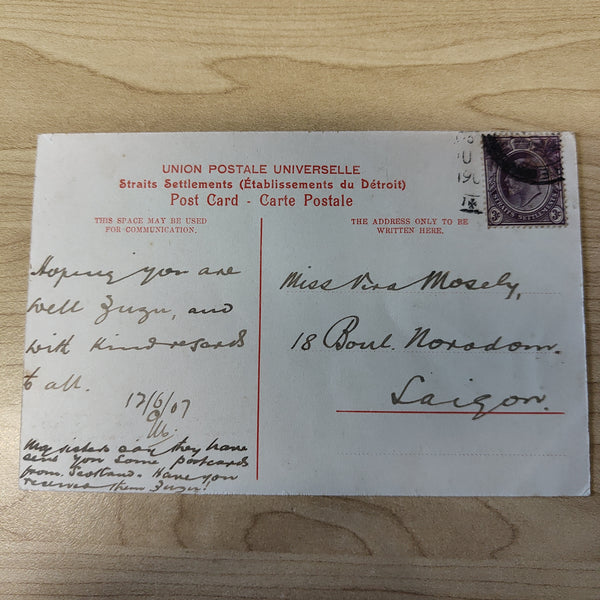 UNION POSTALE UNIVERSELLE
Straits Settlements (Établissements du Détroit)
Post Card - Carte Postale
THIS SPACE MAY BE USED
FOR COMMUNICATION.
Hoping you are
well Zuzu, and
with kind regards
to all.
12/6/07
My sisters say they have
sent you some postcards
from Scotland. Have you
received them Zuzu!
THE ADDRESS ONLY TO BE
WRITTEN HERE.
Miss Vera Mosely,
18 Boul. Norodom.
Saigon.
190
3c 3c